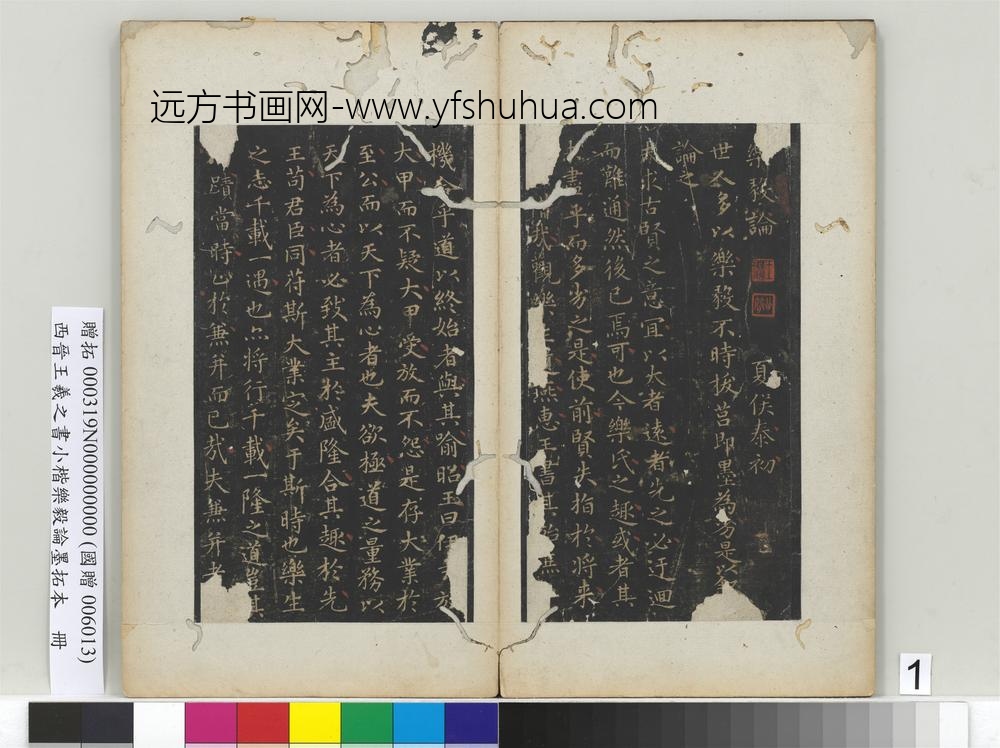 远方书画网-www.yfshuhua.com
樂毅論 夏侯泰初
世人多以樂毅不時拔莒即墨為劣是以叙
論之
夫求古賢之意宜以大者遠者先之必迂迴
而難通然後已焉可也今樂氏之趣或者其
未盡乎而多劣之是使前賢失指於將来
惜哉觀樂生遺燕惠王書其殆庶
機合乎道以終始者與其喻昭王曰伊尹放
大甲而不疑大甲受放而不怨是存大業於
至公而以天下為心者也夫欲極道之量務以
天下為心者必致其主於盛隆合其趣於先
王苟君臣同苻斯大業定矣于斯時也樂生
之志千載一遇也亦將行千載一隆之道豈其
蹟當時止於兼并而已哉夫兼并者
贈拓 000319N000000000 (國贈 006013)
西晉王羲之書小楷樂毅論墨拓本 冊
1